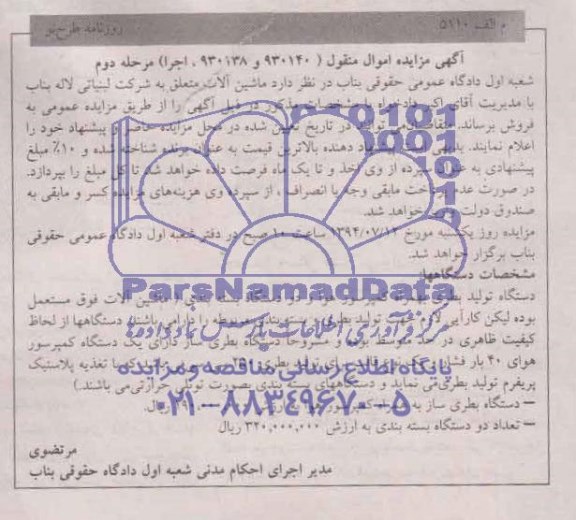 م الف ۵۱۱۰
روزنامه طرح نو
آگهی مزایده اموال منقول ( ۹۳۰۱۴۰ و ۹۳۰۱۳۸ ، اجرا) مرحله دوم
شعبه اول دادگاه عمومی حقوقی بناب در نظر دارد ماشین آلات متعلق به شرکت لبنیاتی لاله بناب
با مدیریت آقای دادخواه با مشخصات مذکور در ذیل آگهی را از طریق مزایده عمومی به
فروش برساند. متقاضیان می توانند در تاریخ تعیین شده در محل مزایده حاضر و پیشنهاد خود را
اعلام نمایند. بدیهی دهنده بالاترین قیمت به عنوان برنده شناخته شده و ۱۰٪ مبلغ
پیشنهادی به عنوان سپرده از وی اخذ و تا یک ماه فرصت داده خواهد شد تا کل مبلغ را بپردازد.
در صورت عدم پرداخت مابقی وجه یا انصراف ، از سپرده وی هزینه‌های مزایده کسر و مابقی به
صندوق دولت خواهد شد.
مزایده روز یکشنبه مورخ ۱۳۹۴/۰۷/۱۲ ساعت ۱۰ صبح در دفتر شعبه اول دادگاه عمومی حقوقی
بناب برگزار خواهد شد.
ParsNamadData
مشخصات دستگاهها:
دستگاه تولید بطری بهمراه کمپرسور هوا و دو دستگاه بسته بندی ( ماشین آلات فوق مستعمل
بوده لیکن کارآیی تولید بطری و بسته بندی مربوطه را دارا می باشند. دستگاهها از لحاظ
کیفیت ظاهری در حد متوسط بوده و مشروحا دستگاه بطری ساز دارای یک دستگاه کمپرسور
مرکز فرآوری اطلاعات پارس نماد داده‌ها
هوای ۴۰ بار فشار تولید بطری که با تغذیه پلاستیک
پایگاه اطلاع رسانی مناقصه و مزایده
پریفرم تولید بطری می نماید و دستگاههای بسته بندی بصورت تونلی حرارتی می باشند.)
– دستگاه بطری ساز به همراه ریال
۰۲۱-۸۸۳۴۹۶۷۰-۵
– تعداد دو دستگاه بسته بندی به ارزش ۳۲۰,۰۰۰,۰۰۰ ریال
مرتضوی
مدیر اجرای احکام مدنی شعبه اول دادگاه حقوقی بناب